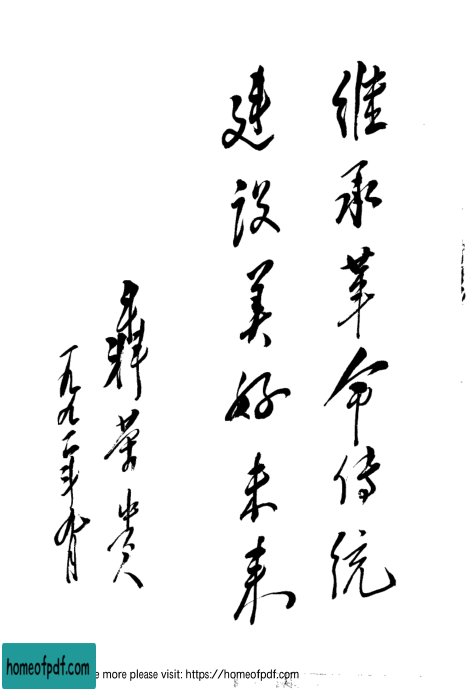 继承革命传统
建设美好未来
荣贵
一九九二年九月
homeofpdf.com
e more please visit: https://homeofpdf.com